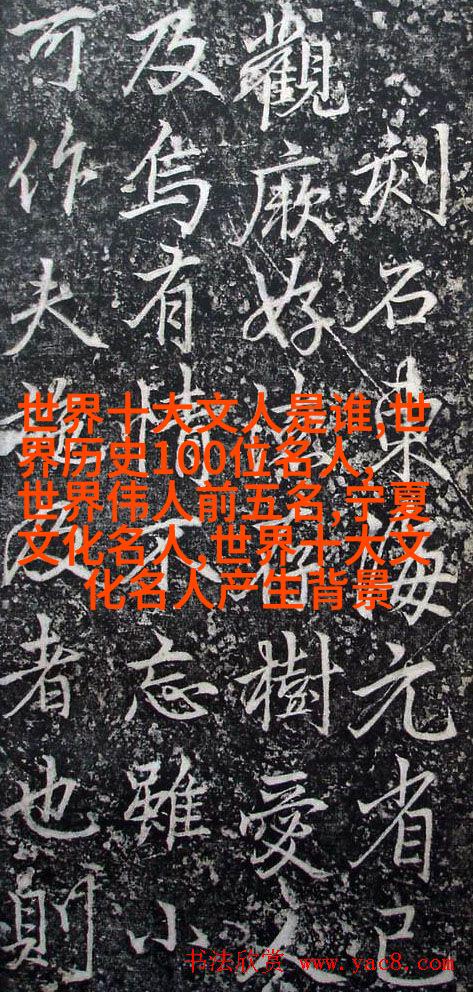 刻石東海元省己
觀厥好存樹愛
及焉有情不忘雖小
可作夫及者也則
世界十大文人是谁,世
界历史100位名人,
世界伟人前五名,宁夏
文化名人,世界十大文
化名人产生背景
书法欣赏 www.yac8.com